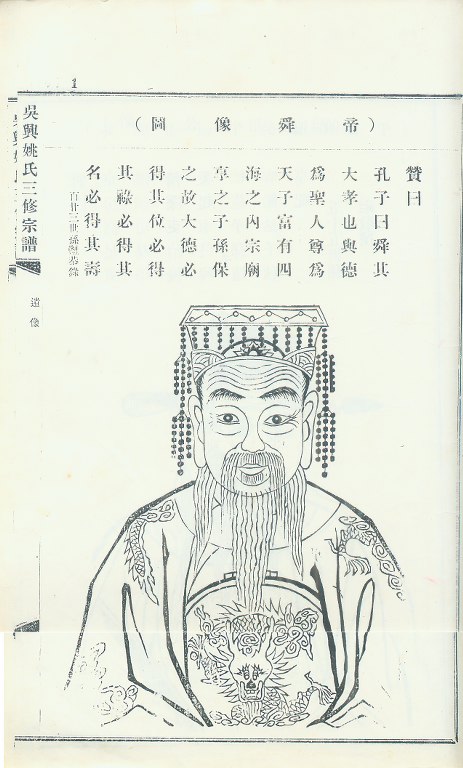 （帝舜像圖）
贊曰
孔子曰舜其
大孝也與德
爲聖人尊爲
天子富有四
海之內宗廟
享之子孫保
之故大德必
得其位必得
其祿必得其
名必得其壽
百廿三世孫恭錄
吳興姚氏三修宗譜
遺像